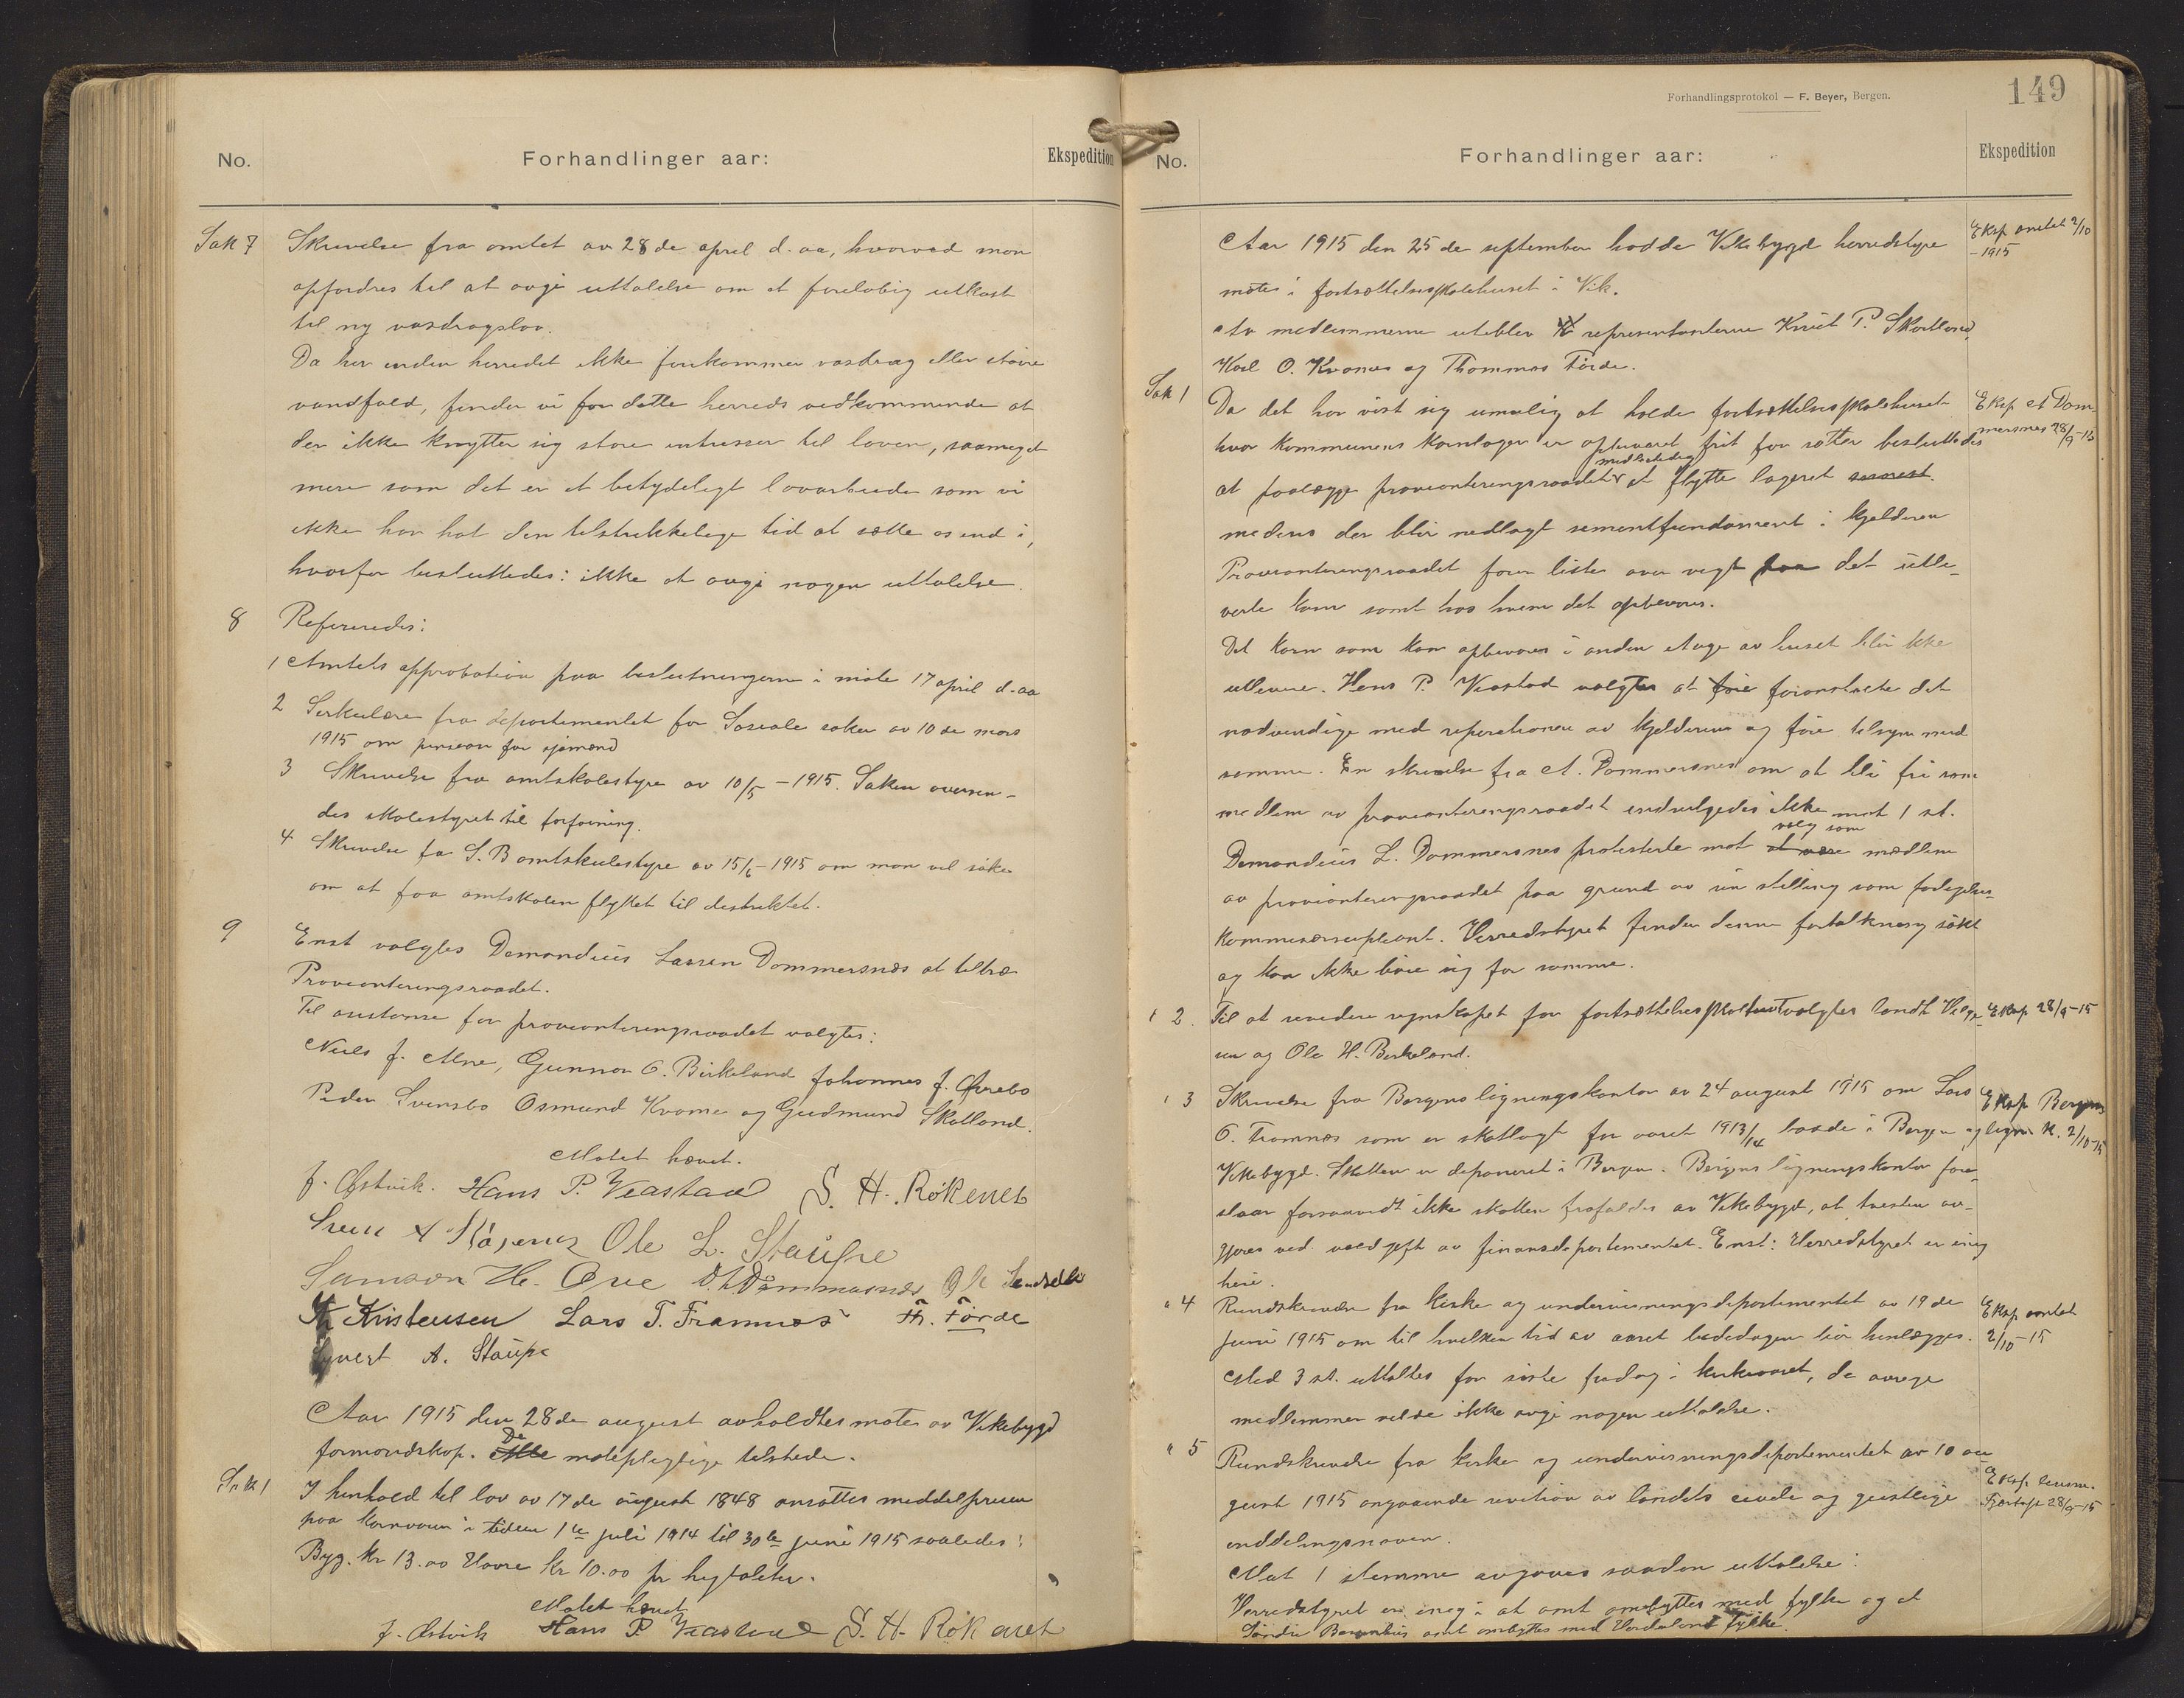 No.
Forhandlinger aar:
Ekspedition
Sak 7
Skrivelse fra amtet av 28de april d. aa, hvorved man
opfordres til at avgi uttalelse om et foreløbig utkast
til ny vasdragslov.
Da her inden herredet ikke forekommer vasdrag eller større
vandfald, finder vi for dette herreds vedkommende at
der ikke knytter sig store intresser til loven, saameget
mere som det er et betydeligt lovarbeide som vi
ikke har hat den tilstrækkelige tid at sætte os ind i,
hvorfor besluttedes: ikke at avgi nogen uttalelse.
8
Refereredes:
1 Amtets approbation paa beslutningerne i møte 17 april d. aa
2 Sirkulære fra departementet for Sosiale saker av 10de mars
1915 om pension for sjømænd
3 Skrivelse fra amtskolestyre av 10/5 - 1915. Saken oversen-
des skolestyret til forføining.
4 Skrivelse fra S. B amtskulestyre av 15/6 - 1915 om man vil søke
om at faa amtskolen flyttet til distriktet.
9
Enst valgtes Demandius Larsen Dommersnæs at tiltræ
Provianteringsraadet.
Til assistanse for provianteringsraadet valgtes:
Nils J. Alne, Gunnar O. Birkeland Johannes J. Øvrebø
Peder Svensbø Osmund Kvame og Gudmund Skatland.
Møtet hævet.
J. Østvik. Hans P. Veastad S. H. Røkenes
Ole L. Staupe
Samson H. Øve D. L. Dommersnæs Ole
Kristensen Lars T. Framnæs Th. Førde
Syvert A. Staupe
Aar 1915 den 28de august avholdtes møte av Vikebygd
formandskap. De møtepligtige tilstede.
Sak 1
I henhold til lov av 17de august 1848 ansattes middelprisen
paa kornvarer i tiden 1te juli 1914 til 30te juni 1915 saaledes:
Byg. kr 13.00 Havre kr 10.00 pr hektoliter.
Møtet hævet
J. Østvik Hans P. Veastad S. H. Røkenes
Forhandlingsprotokol — F. Beyer, Bergen.
149
No.
Forhandlinger aar:
Ekspedition
Aar 1915 den 25de september hadde Vikebygd herredstyre
Eksp amtet 2/10
- 1915
møte i fortsættelsesskolehuset i Vik.
Av medlemmerne uteblev representanterne Knut P. Skartland,
Karl O. Kvanes og Thommas Førde.
Sak 1
Da det har vist sig umulig at holde fortsættelsesskolehuset
Eksp A Dom
mersnes 28/9-15
hvor kommunens kornlager er opbevaret frit for rotter besluttedes
at paalægge provianteringsraadet at flytte lageret snarest.
medens der blir nedlagt sementfundament i kjelderen
Provianteringsraadet fører liste over vegt paa det utle-
verte korn samt hos hvem det opbevares.
Det korn som kan opbevares i anden etage av huset blir ikke
utlevere. Hans P. Veastad valgtes at føre foranstalte det
nødvendige med reperationen av kjelderen og føre tilsyn med
samme. En skrivelse fra A. Dommersnes om at bli fri som
medlem av provianteringsraadet indvilgedes ikke mot 1 st.
Demandius L. Dommersnes protesterte mot at være medlem
valg som
av provianteringsraadet paa grund av sin stilling som forligelses-
kommissærsupleant. Herredstyret finder denne fortolkning søkt
og kan ikke bøie sig for samme.
" 2.
Til at revidere regnskapet for fortsættelsesskolehuset valgtes
Eksp 28/9-15
og Ole H. Birkeland.
" 3
Skrivelse fra Bergens ligningskontor av 24 august 1915 om Lars
Eksp Bergens
O. Framnæs som er skatlagt for aaret 1913/14 baade i Bergen og
lign. K. 2/10-15
Vikebygd. Skatten er deponeret i Bergen. Bergens ligningskontor fore-
slaar forsaavidt ikke skatten frafaldes av Vikebygd, at tvisten av-
gjøres ved voldgift av finansdepartementet. Enst: Herredstyret er enig
heri.
" 4
Rundskrivelse fra Kirke og undervisningsdepartementet av 19de
Eksp amtet
2/10-15
juni 1915 om til hvilken tid av aaret bededagen bør henlægges.
Med 3 st. uttaltes for siste fredag i kirkeaaret, de øvrige
medlemmer vilde ikke avgi nogen uttalelse.
" 5
Rundskrivelse fra kirke og undervisningsdepartementet av 10 au
gust 1915 angaaende revition av landets civile og geistlige
Eksp
28/9-15
inddelingsnavn.
Mot 1 stemme avgaves saadan uttalelse:
Herredstyret er enig i at amt ombyttes med fylke og at
Søndre Bergenhus amt ombyttes med Hordaland fylke.